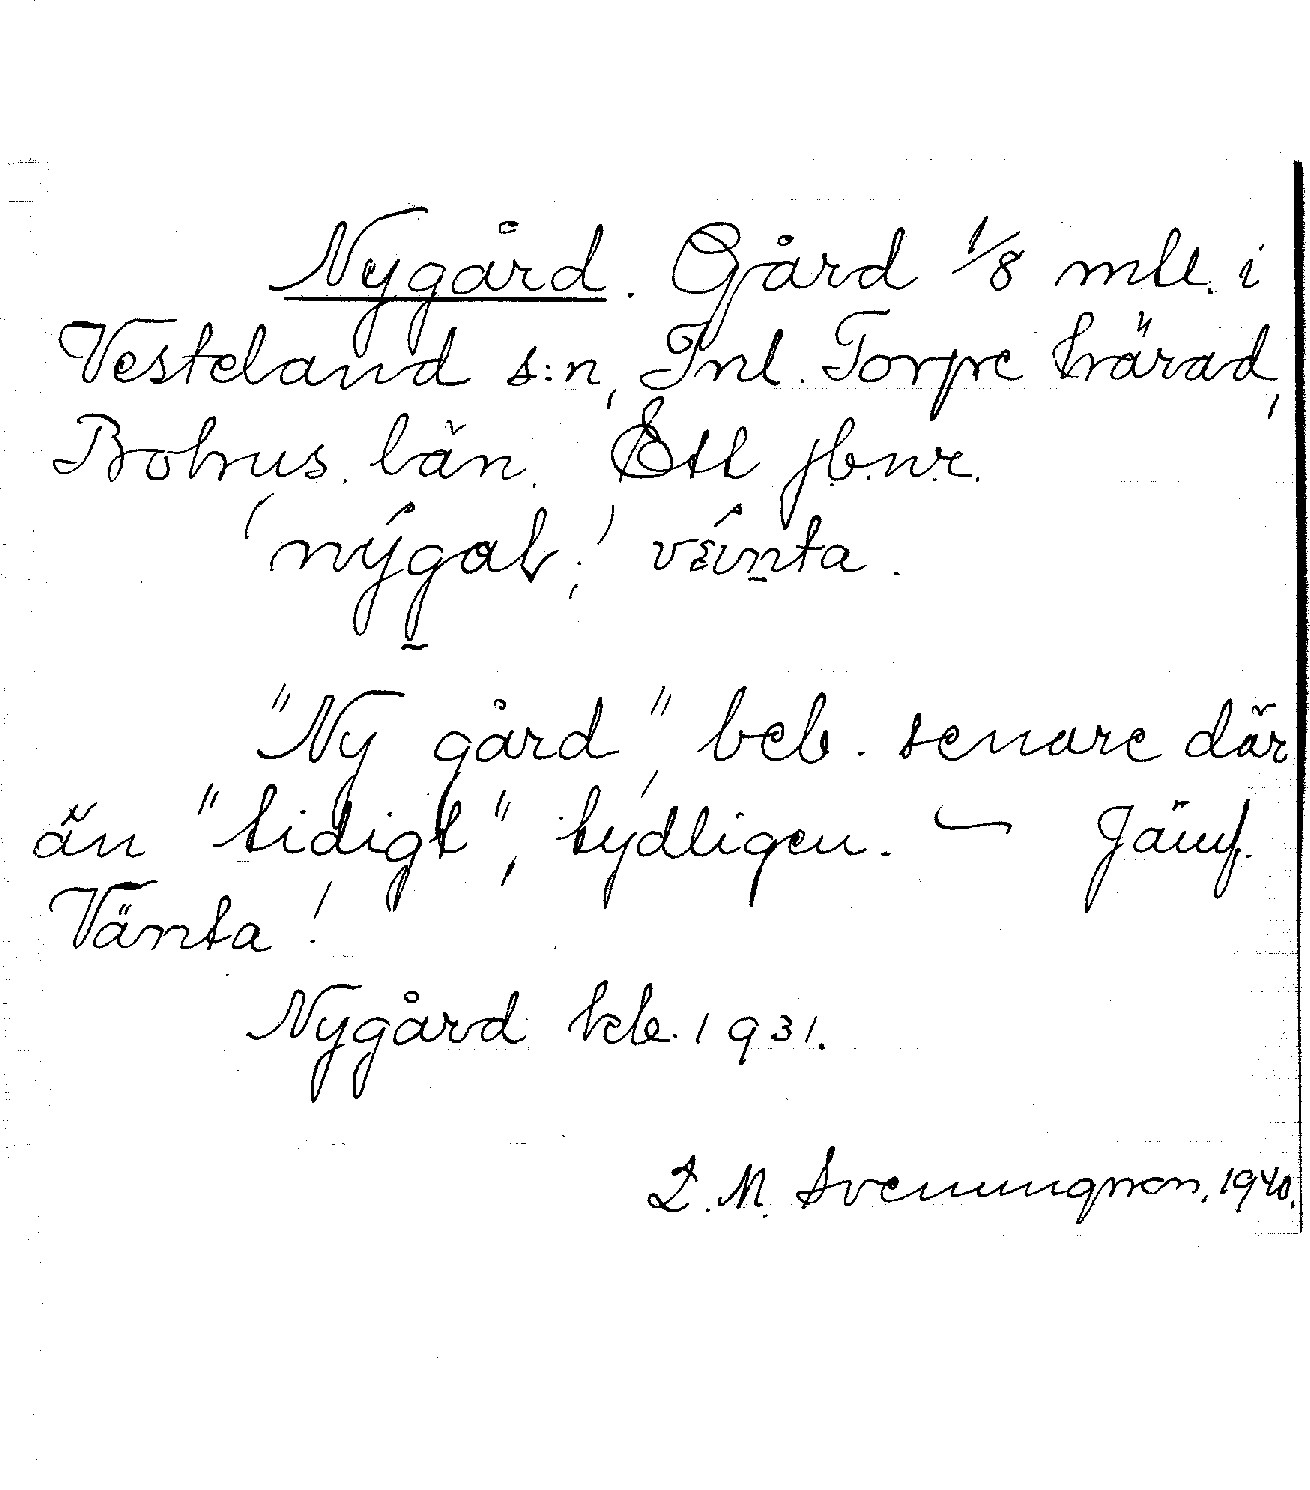 Nygård. Gård 1/8 mtl. i
Vesteland s:n, Inl. Torpe härad,
Bohus. län. Ett jb.nr.
(nýgab; ) véinta.
"Ny gård", beb. senare där
än "tidigt", tydligen. — Jämf.
Vänta!
Nygård kb. 1931.
L. M. Svenungsson, 1940.